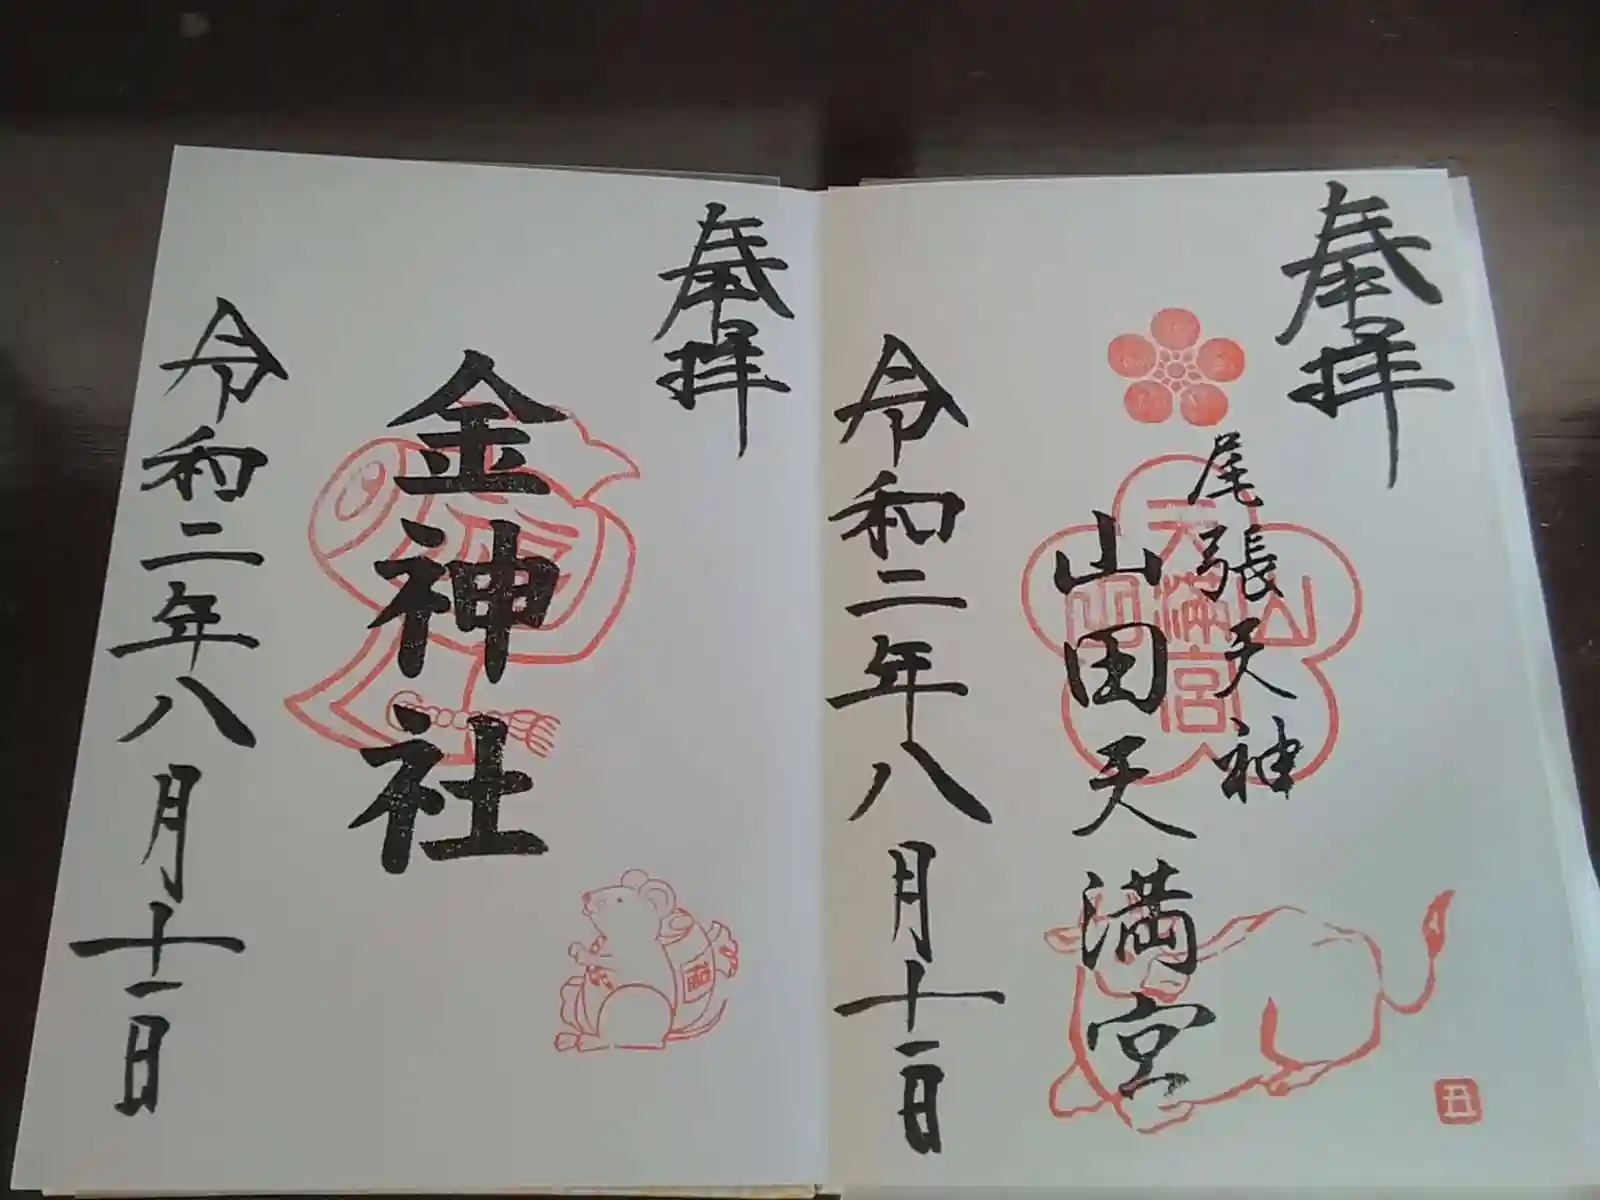 奉拝
尾張天神
山田天満宮
天満宮
山
令和二年八月十一日
丑
奉拝
金神社
令和二年八月十一日